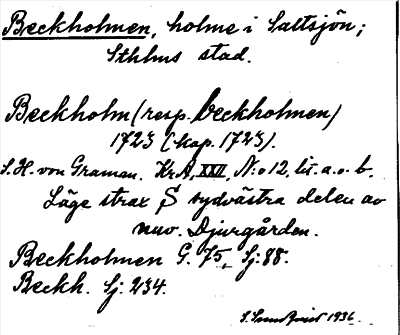 Beckholmen, holme i Saltsjön;
Sthlms stad.
Beckholm (resp. beckholmen)
1723 (kop. 1723).
S. H. von Graman. Kr A, XXI, N:o 12, lit. a. o. b.
Läge strax S sydvästra delen av
nuv. Djurgården.
Beckholmen G. 75, Sj: 88.
Beckh. Sj: 234.
1936.